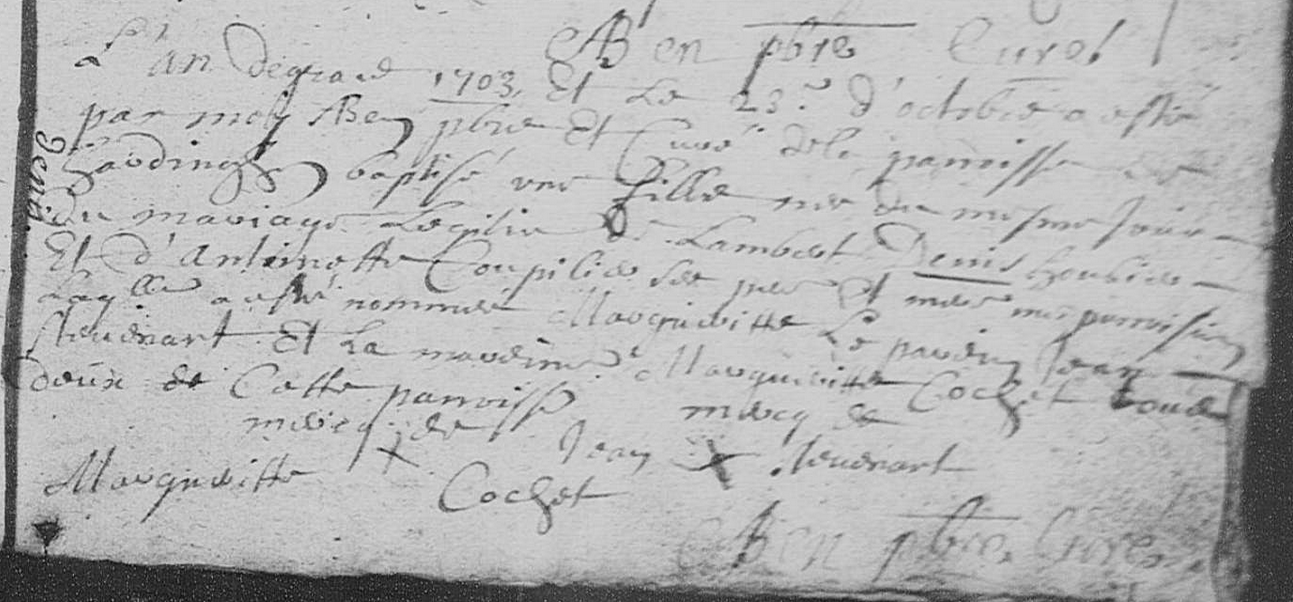 ABen pbre Curé
L'an de grace 1703, Et Le 23e d'octobre a esté
par moy ABen pbre Et Curé de la paroisse de
baptisé une fille née du mesme Jour
du mariage Legitime de Lambert Denis
Et d'Antoinette Coupilie ses per Et mere mes paroisiens
Laqlle a esté nommée Margueritte Le parein Jean
Steuenart Et La mareine Marguerite Cochet tous
deux de Cette paroisse
mercq de mercq de
Marguerite X Cochet Jean X Steuenart
ABen pbre Curé
Denis